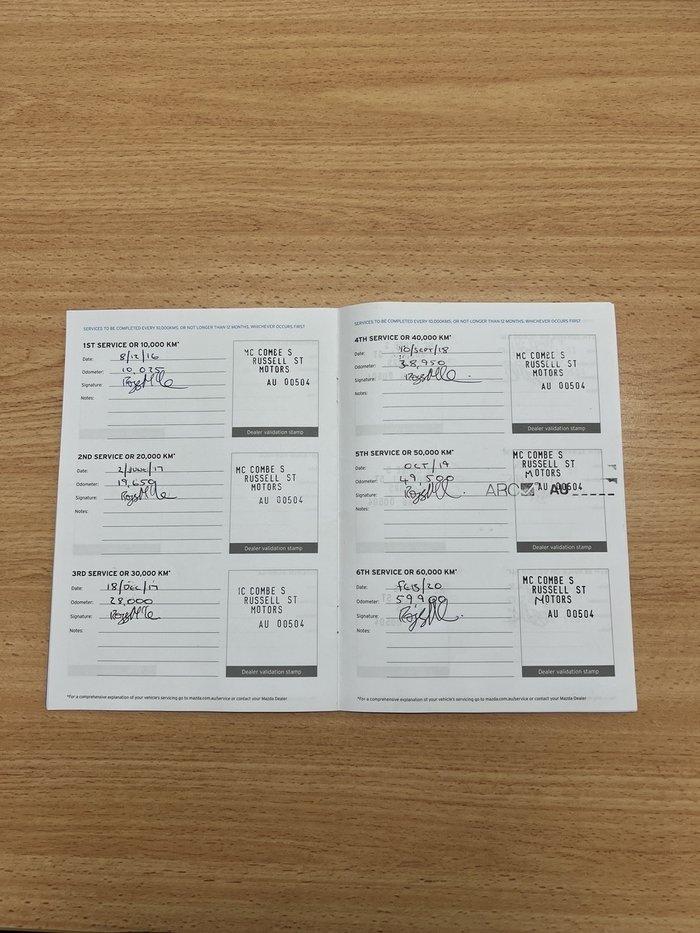 SERVICES TO BE COMPLETED EVERY 10,000KMS, OR NOT LONGER THAN 12 MONTHS, WHICHEVER OCCURS FIRST
1ST SERVICE OR 10,000 KM*
Date: 8/12/16
Odometer: 10,025
Signature:
Notes:
MC COMBE S
RUSSELL ST
MOTORS
AU 00504
Dealer validation stamp
2ND SERVICE OR 20,000 KM*
Date: 2/JUNE/17
Odometer: 19,650
Signature:
Notes:
MC COMBE S
RUSSELL ST
MOTORS
AU 00504
Dealer validation stamp
3RD SERVICE OR 30,000 KM*
Date: 18/DEC/17
Odometer: 28,000
Signature:
Notes:
C COMBE S
RUSSELL ST
MOTORS
AU 00504
Dealer validation stamp
*For a comprehensive explanation of your vehicle's servicing go to mazda.com.au/service or contact your Mazda Dealer
SERVICES TO BE COMPLETED EVERY 10,000KMS, OR NOT LONGER THAN 12 MONTHS, WHICHEVER OCCURS FIRST
4TH SERVICE OR 40,000 KM*
Date: 10/SEPT/18
Odometer: 38,950
Signature:
Notes:
MC COMBE S
RUSSELL ST
MOTORS
AU 00504
Dealer validation stamp
5TH SERVICE OR 50,000 KM*
Date: OCT/19
Odometer: 49,500
Signature:
Notes:
MC COMBE S
RUSSELL ST
MOTORS
AU 00504
ARC AU
Dealer validation stamp
6TH SERVICE OR 60,000 KM*
Date: FEB/20
Odometer: 59,900
Signature:
Notes:
MC COMBE S
RUSSELL ST
MOTORS
AU 00504
Dealer validation stamp
*For a comprehensive explanation of your vehicle's servicing go to mazda.com.au/service or contact your Mazda Dealer